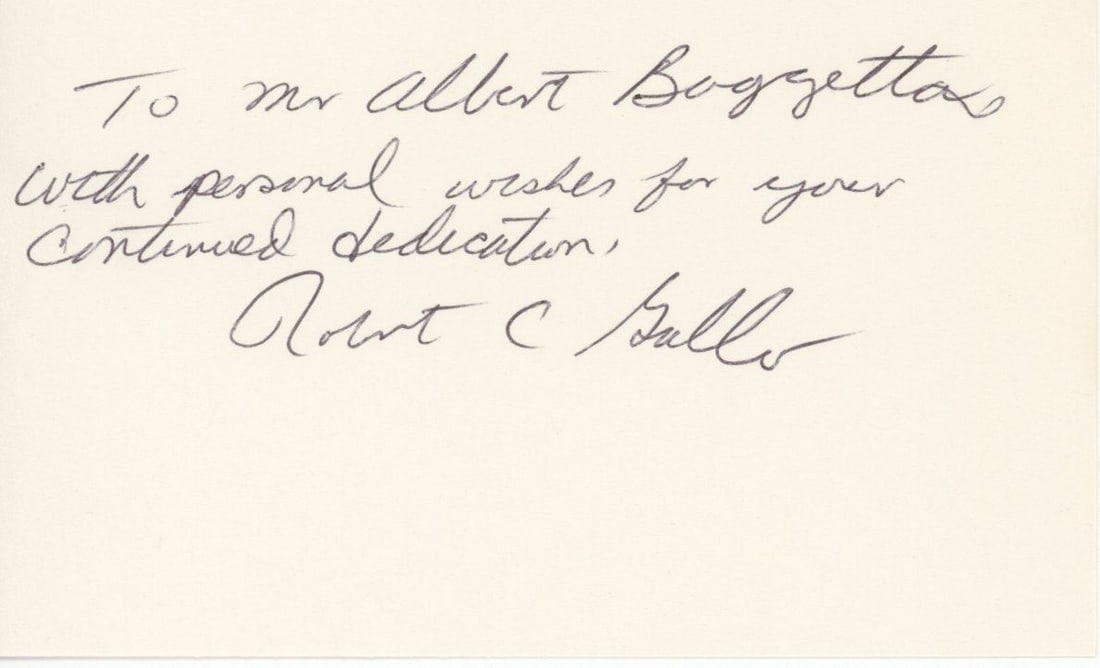 To Mr Albert Baggetta
with personal wishes for your
continued dedication.
Robert C Gallo